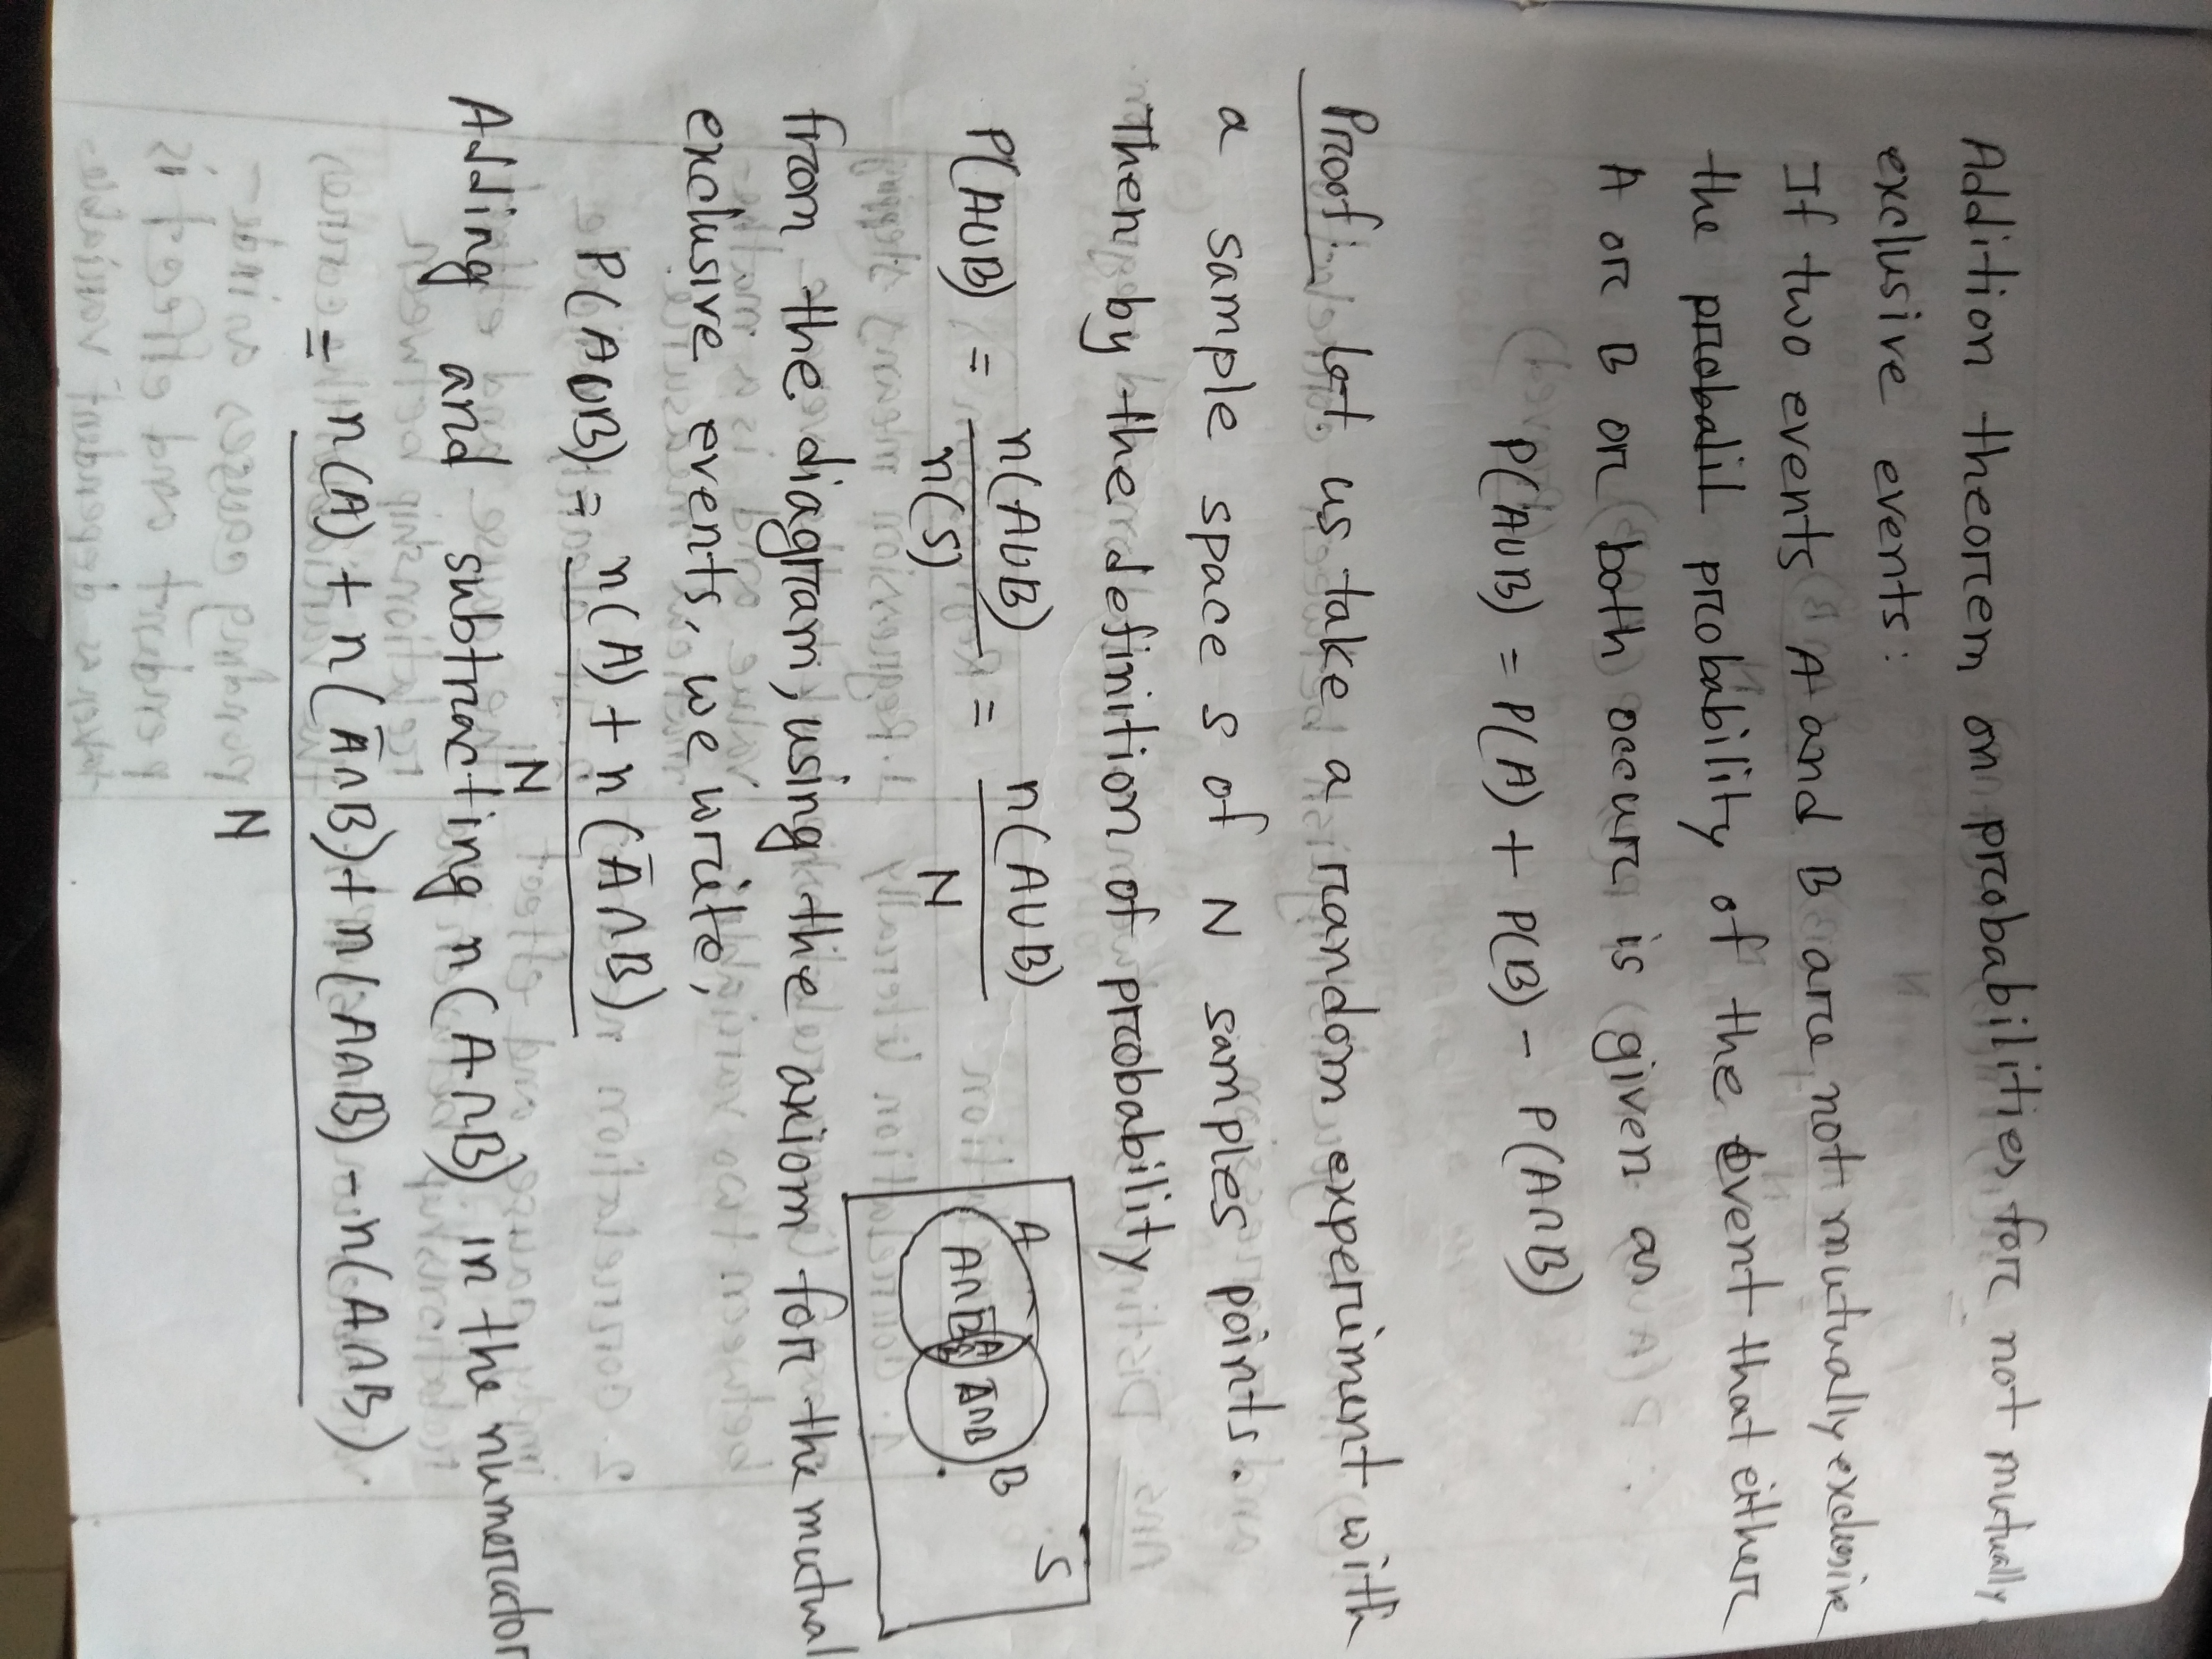 Addition theorem on probabilities for not mutually
exclusive events:
If two events A and B are not mutually exclusive
the probalil probability of the event that either
A or B or both occur is given as
P(A∪B) = P(A) + P(B) - P(A∩B)
Proof: let us take a random experiment with
a sample space S of N samples points.
Then by the definition of probability
P(A∪B) = n(A∪B)/n(S) = n(A∪B)/N
A B S
A∩B̅ A∩B A̅∩B
from the diagram, using the axiom for the mutual
exclusive events, we write,
P(A∪B) = n(A) + n(A̅∩B)/N
Adding and subtracting n(A∩B) in the numerator
= n(A) + n(A̅∩B) + n(A∩B) - n(A∩B)/N